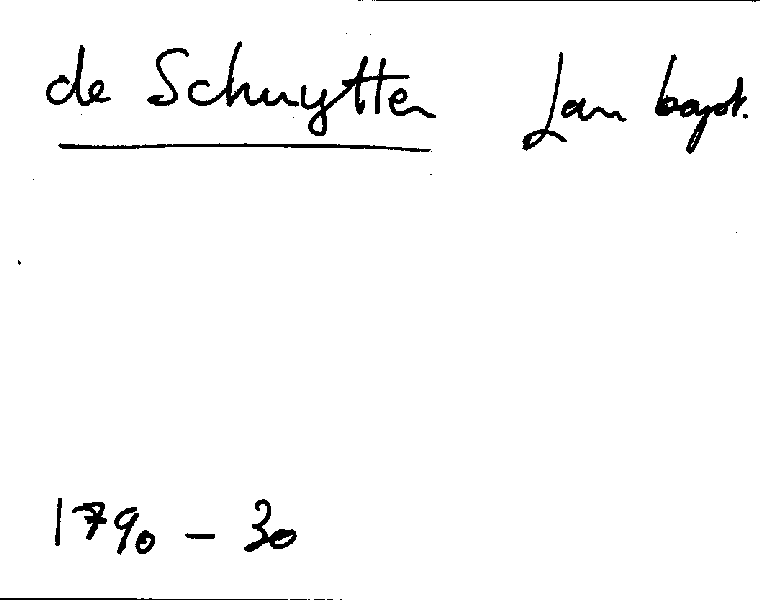 de Schuytter Jan bapt.
1790 - 30